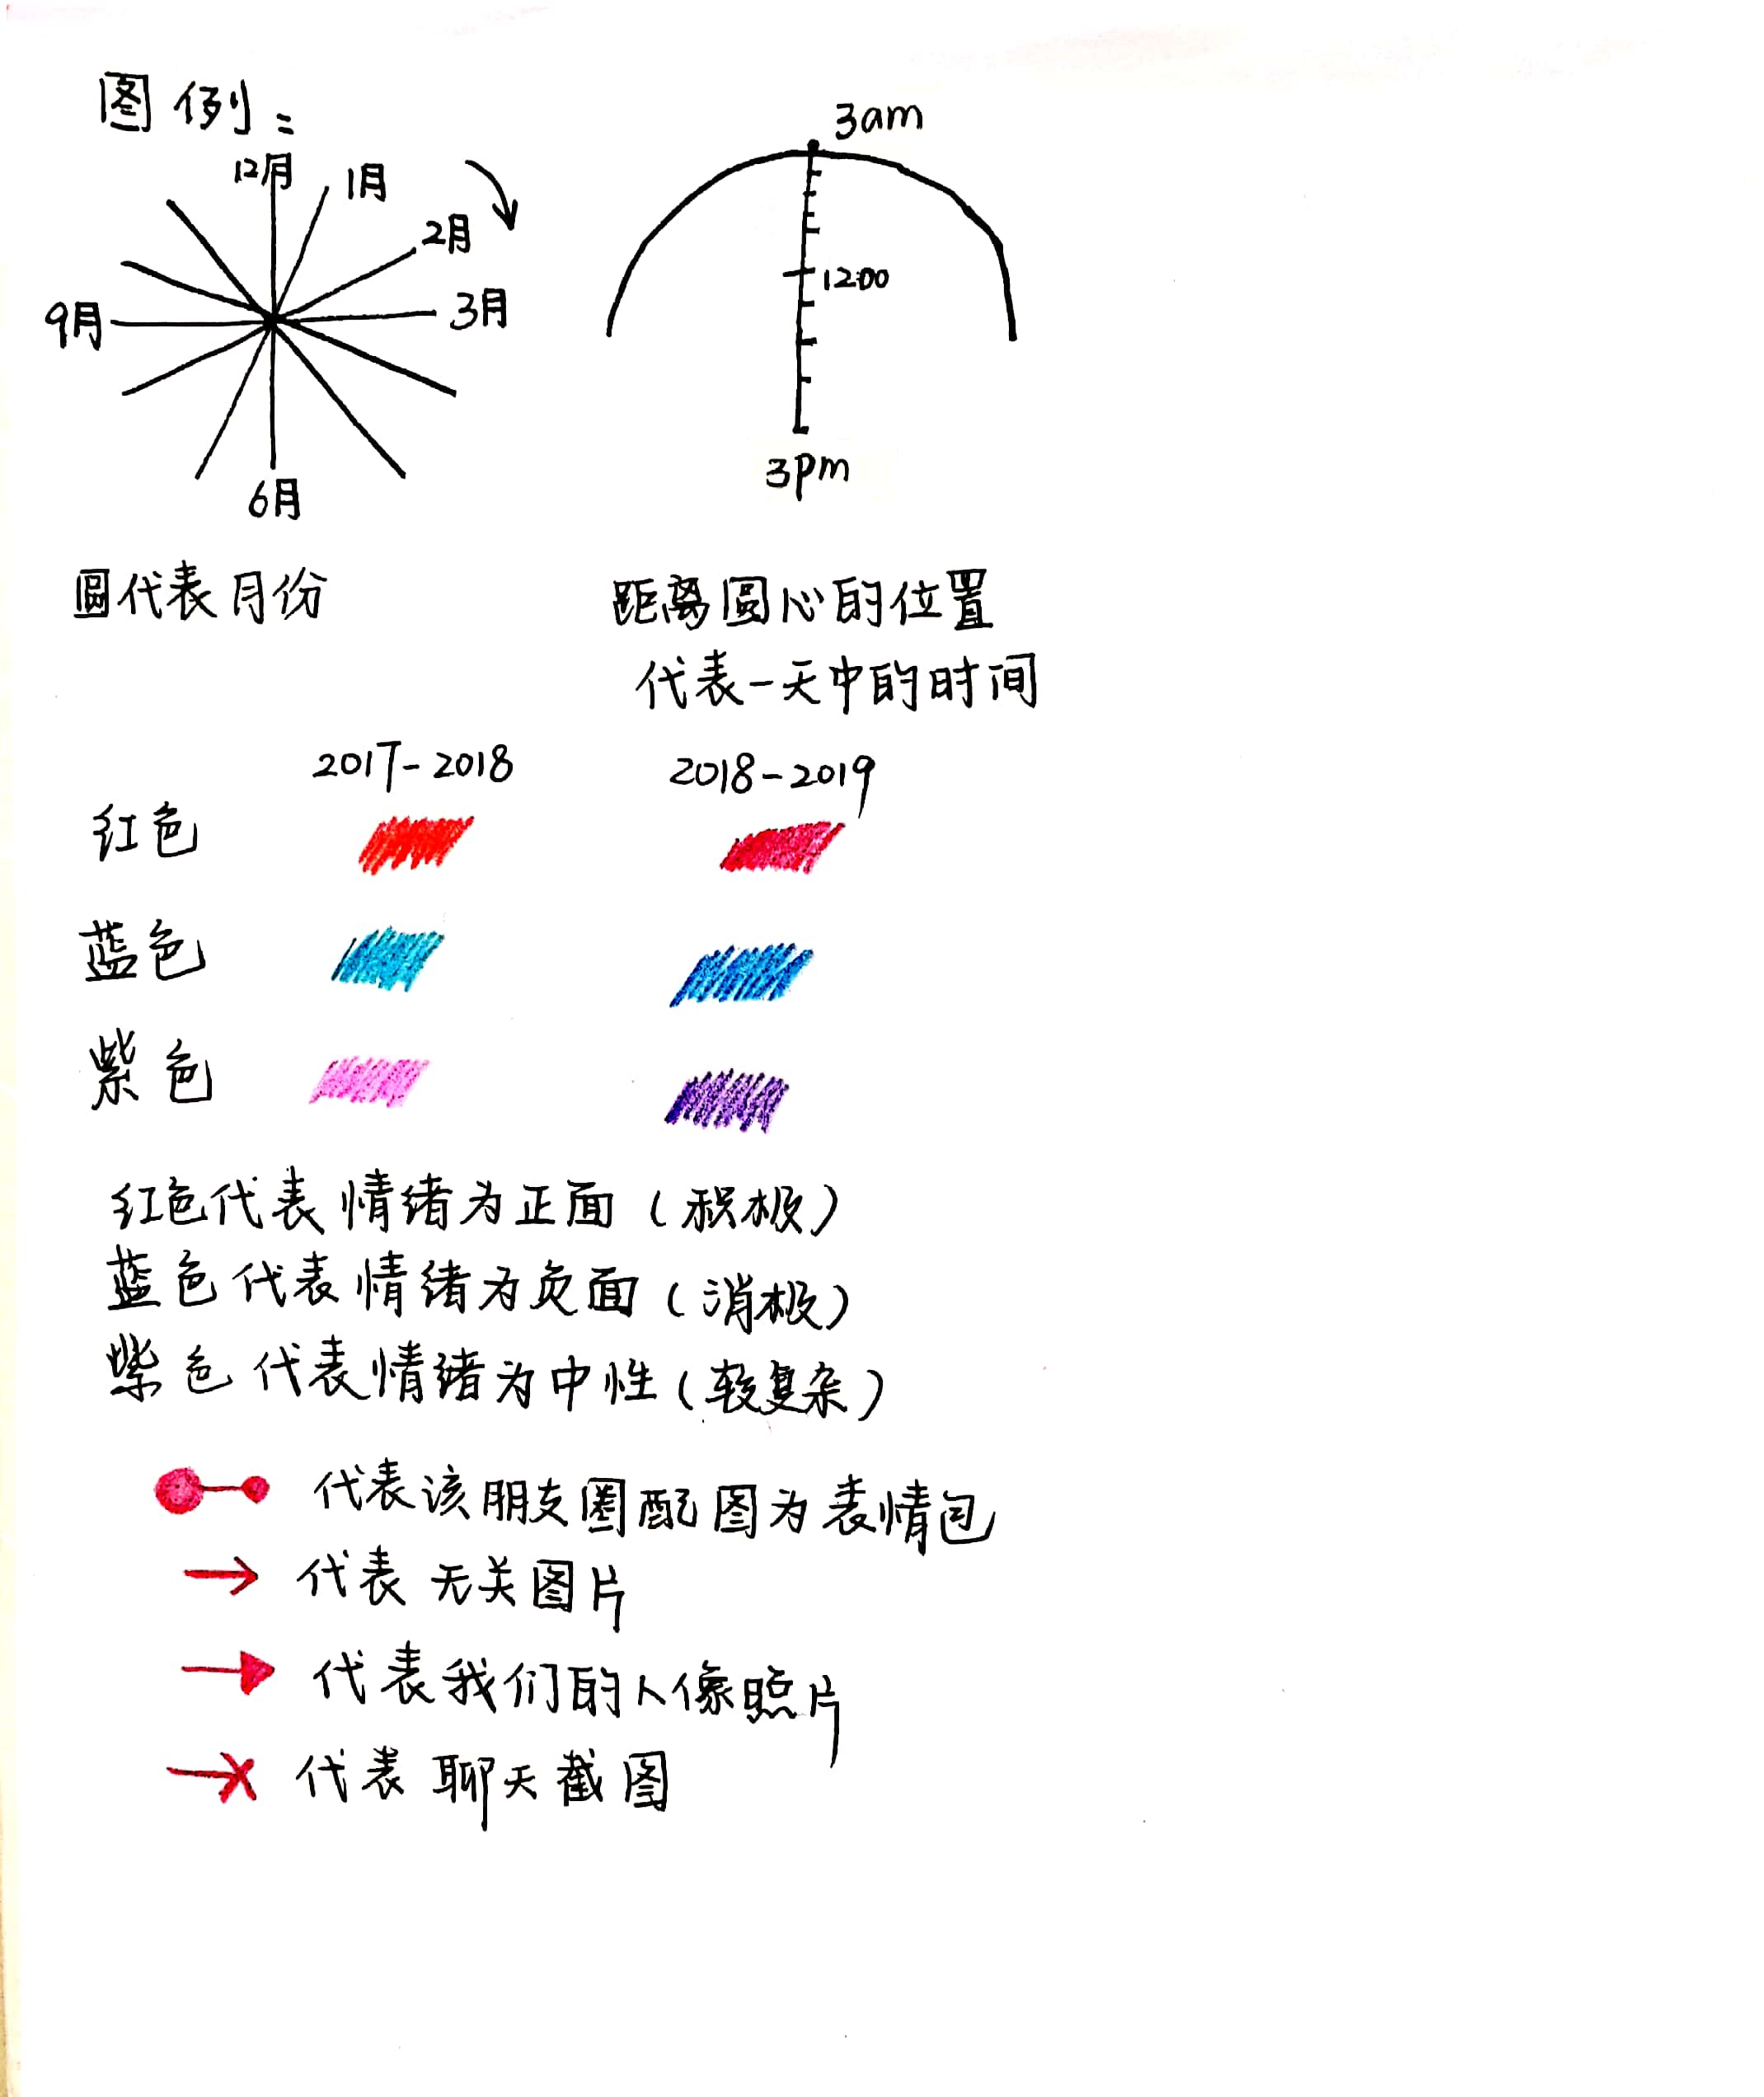 图例:
12月
1月
2月
3月
6月
9月
3am
12:00
3pm
圆代表月份
距离圆心的位置
代表一天中的时间
2017-2018 2018-2019
红色
蓝色
紫色
红色代表情绪为正面(积极)
蓝色代表情绪为负面(消极)
紫色代表情绪为中性(较复杂)
代表该朋友圈配图为表情包
代表无关图片
代表我们的人像照片
代表聊天截图